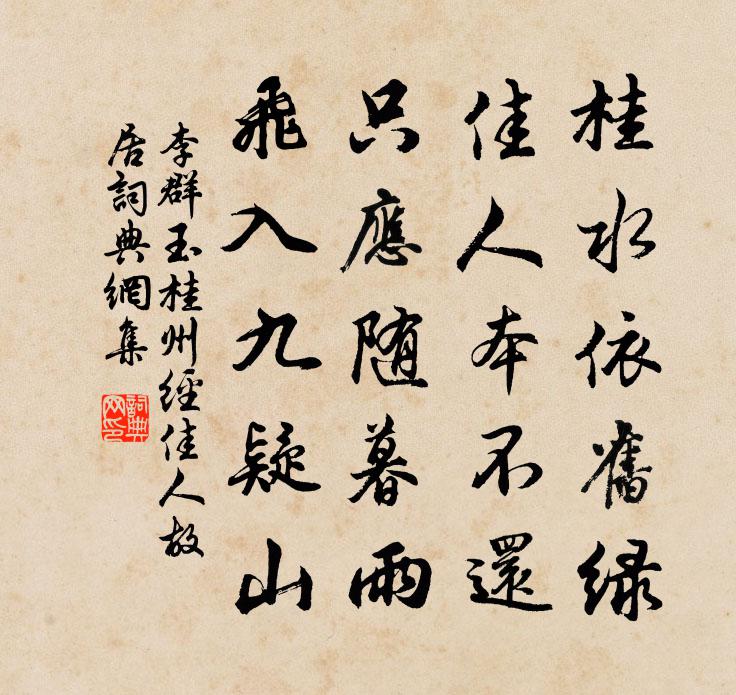 桂水依舊綠
佳人本不還
只應隨暮雨
飛入九疑山
李群玉桂州經佳人故
居詞典網集
詞典网印